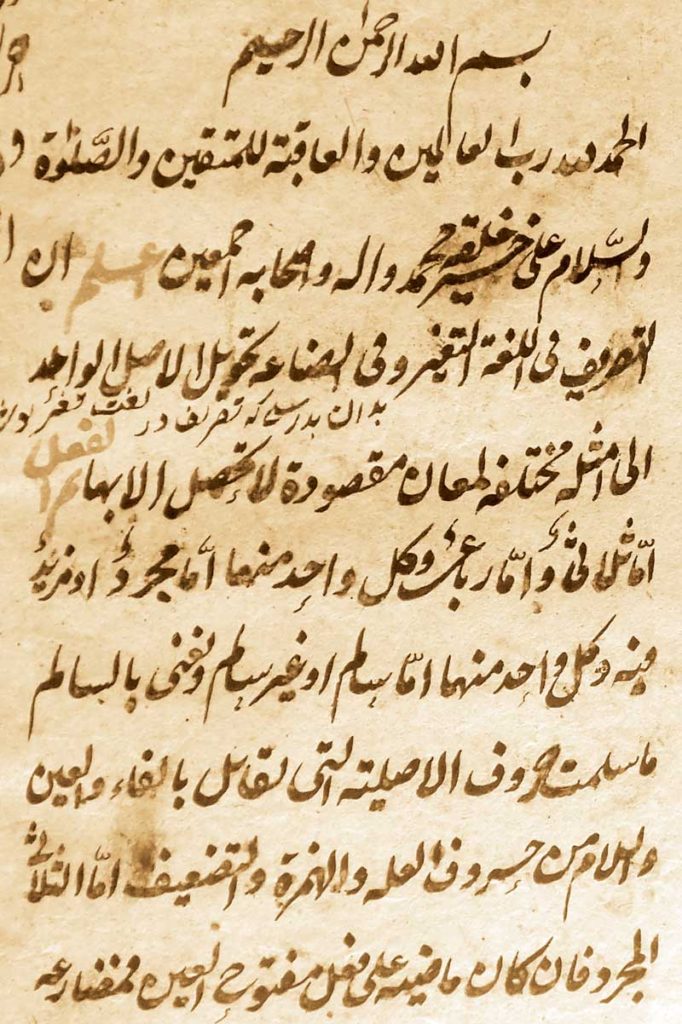 بسم الله الرحمن الرحیم
الحمد لله رب العالمین والعاقبة للمتقین والصَّلوٰة
والسَّلام علیٰ خیر خلقه محمد واله واصحابه اجمعین اعلم ان
التصریف فی اللغة التغیر وفی الصناعه تحویل الاصل الواحد
بدان بدرستی که تصریف در لغت تغیر
الی امثله مختلفه لمعان مقصودة لا تحصل الا بها ثم الفعل
امّا ثلاثیٌّ وامّا رباعیٌّ وکل واحد منهما امّا مجردٌ او مزیدٌ
فیه وکل واحد منهما امّا سالم او غیر سالم ونغنی بالسالم
ما سلمت حروف الاصلیته التی تقابل بالفاء والعین
واللام من حروف العله والهمزة والتضعیف امّا الثلاثیُّ
المجرد فان کان ماضیه علی فعل مفتوح العین فمضارعه